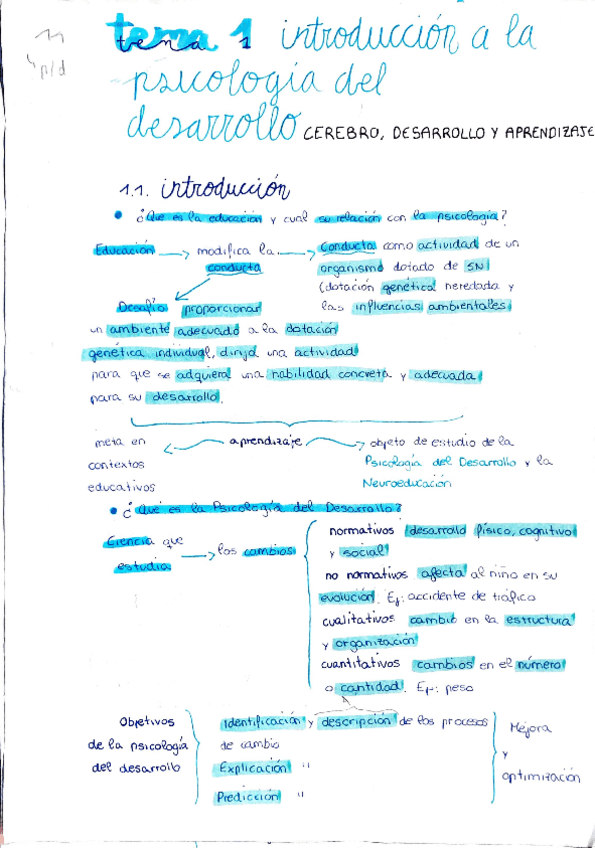 11
↳ p/d
tema 1 introducción a la
psicología del
desarrollo CEREBRO, DESARROLLO Y APRENDIZAJE
1.1. introducción
• ¿Qué es la educación y cual su relación con la psicología?
Educación → modifica la → Conducta como actividad de un
conducta organismo dotado de SN
(dotación genética heredada y
Desafío: proporcionar las influencias ambientales)
un ambiente adecuado a la dotación
genética individual, dirija una actividad
para que se adquiera una habilidad concreta y adecuada
para su desarrollo.
meta en ← aprendizaje → objeto de estudio de la
contextos Psicología del Desarrollo y la
educativos Neuroeducación
• ¿Qué es la Psicología del Desarrollo?
Ciencia que
estudia → los cambios
normativos desarrollo físico, cognitivo
y social
no normativos afecta al niño en su
evolución. Ej: accidente de tráfico
cualitativos cambio en la estructura
y organización
cuantitativos cambios en el número
o cantidad. Ej: peso
Objetivos
de la psicología
del desarrollo
Identificación y descripción de los procesos
de cambio
Explicación "
Predicción "
Mejora
y
optimización